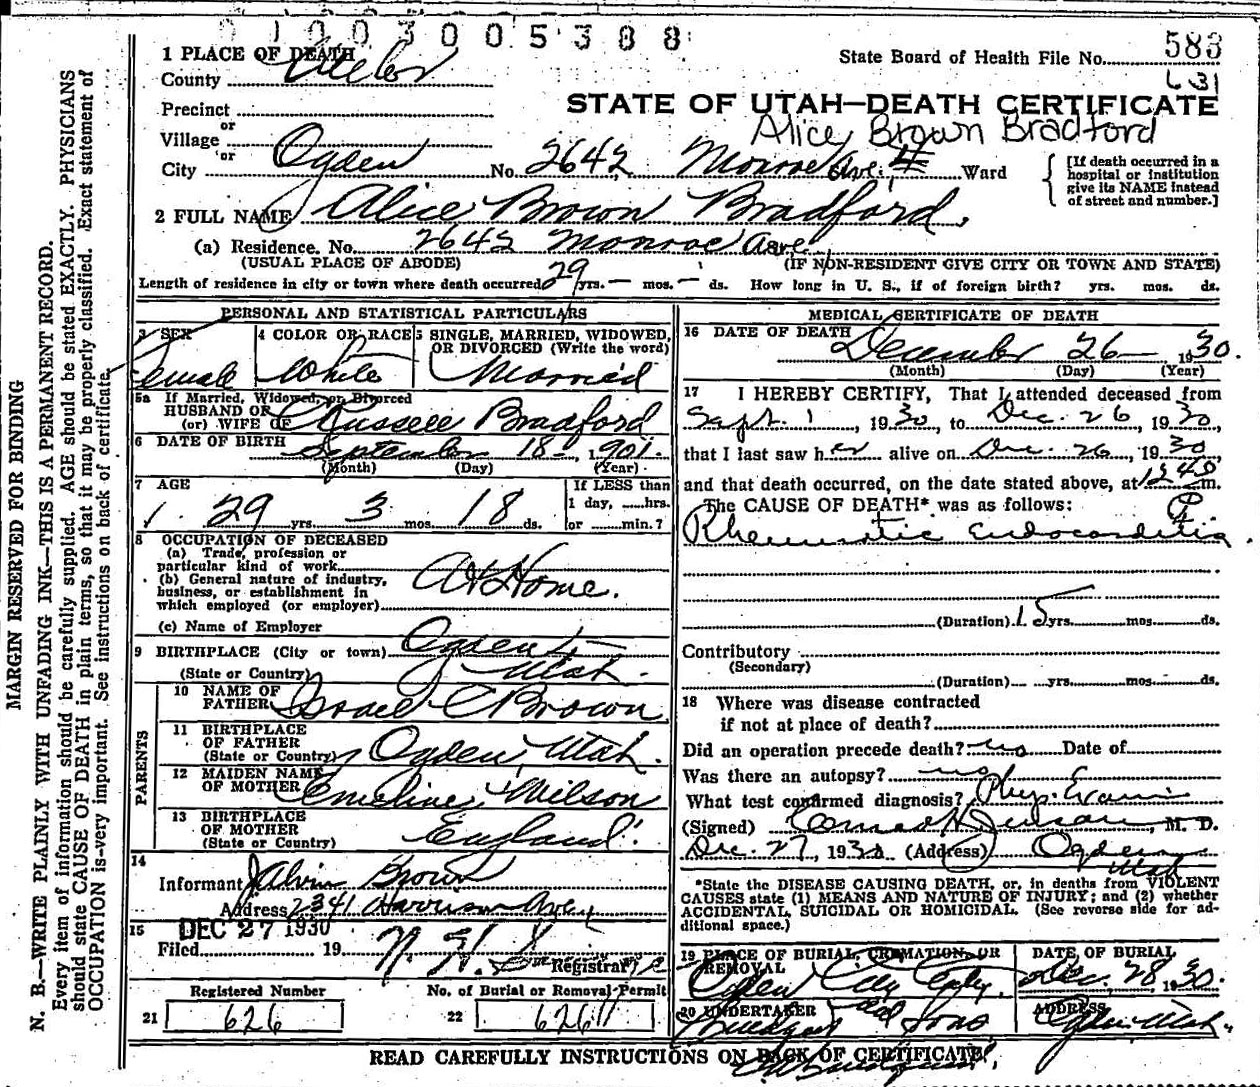 01003005388
1 PLACE OF DEATH
County Weber
State Board of Health File No. 583
631
Precinct
or
Village
or
City Ogden No. 2642 Monroe Ave. Ward
STATE OF UTAH—DEATH CERTIFICATE
Alice Brown Bradford
[If death occurred in a
hospital or institution
give its NAME instead
of street and number.]
2 FULL NAME Alice Brown Bradford.
(a) Residence. No. 2642 Monroe Ave.
(USUAL PLACE OF ABODE) (IF NON-RESIDENT GIVE CITY OR TOWN AND STATE)
Length of residence in city or town where death occurred 29 yrs. — mos. — ds. How long in U. S., if of foreign birth? yrs. mos. ds.
MARGIN RESERVED FOR BINDING
N. B.—WRITE PLAINLY WITH UNFADING INK—THIS IS A PERMANENT RECORD.
Every item of information should be carefully supplied. AGE should be stated EXACTLY. PHYSICIANS
should state CAUSE OF DEATH in plain terms, so that it may be properly classified. Exact statement of
OCCUPATION is very important. See instructions on back of certificate.
PERSONAL AND STATISTICAL PARTICULARS
3 SEX
Female
4 COLOR OR RACE
White
5 SINGLE, MARRIED, WIDOWED,
OR DIVORCED (Write the word)
Married
5a If Married, Widowed, or Divorced
HUSBAND OF
(or) WIFE OF Russell Bradford
6 DATE OF BIRTH September 18, 1901.
(Month) (Day) (Year)
7 AGE
29 yrs. 3 mos. 18 ds.
If LESS than
1 day, ......hrs.
or ......min.?
8 OCCUPATION OF DECEASED
(a) Trade, profession or
particular kind of work
(b) General nature of industry,
business, or establishment in
which employed (or employer)
At Home.
(c) Name of Employer
9 BIRTHPLACE (City or town) Ogden
(State or Country) Utah.
PARENTS
10 NAME OF
FATHER Israel C Brown
11 BIRTHPLACE
OF FATHER
(State or Country) Ogden, Utah.
12 MAIDEN NAME
OF MOTHER Emeline Wilson
13 BIRTHPLACE
OF MOTHER
(State or Country) England.
14
Informant Alvin Brown
Address 2341 Harrison Ave
15 DEC 27 1930
Filed 19
Registrar
Registered Number
21 626
No. of Burial or Removal Permit
22 626
MEDICAL CERTIFICATE OF DEATH
16 DATE OF DEATH December 26 1930.
(Month) (Day) (Year)
17 I HEREBY CERTIFY, That I attended deceased from
Sept. 1, 1930, to Dec. 26, 1930,
that I last saw her alive on Dec. 26, 1930
and that death occurred, on the date stated above, at 1240 P m.
The CAUSE OF DEATH* was as follows:
Rheumatic Endocarditis.
(Duration) 15 yrs. mos. ds.
Contributory
(Secondary)
(Duration) yrs. mos. ds.
18 Where was disease contracted
if not at place of death?
Did an operation precede death? no Date of
Was there an autopsy? no
What test confirmed diagnosis? Phys. Exam
(Signed) Conrad H Jenson, M. D.
Dec. 27, 1930 (Address) Ogden
Utah
*State the DISEASE CAUSING DEATH, or, in deaths from VIOLENT
CAUSES state (1) MEANS AND NATURE OF INJURY; and (2) whether
ACCIDENTAL, SUICIDAL OR HOMICIDAL. (See reverse side for ad-
ditional space.)
19 PLACE OF BURIAL, CREMATION, OR
REMOVAL
Ogden City
DATE OF BURIAL
Dec. 28, 1930.
20 UNDERTAKER
and Sons
ADDRESS
Ogden Utah.
READ CAREFULLY INSTRUCTIONS ON BACK OF CERTIFICATE.